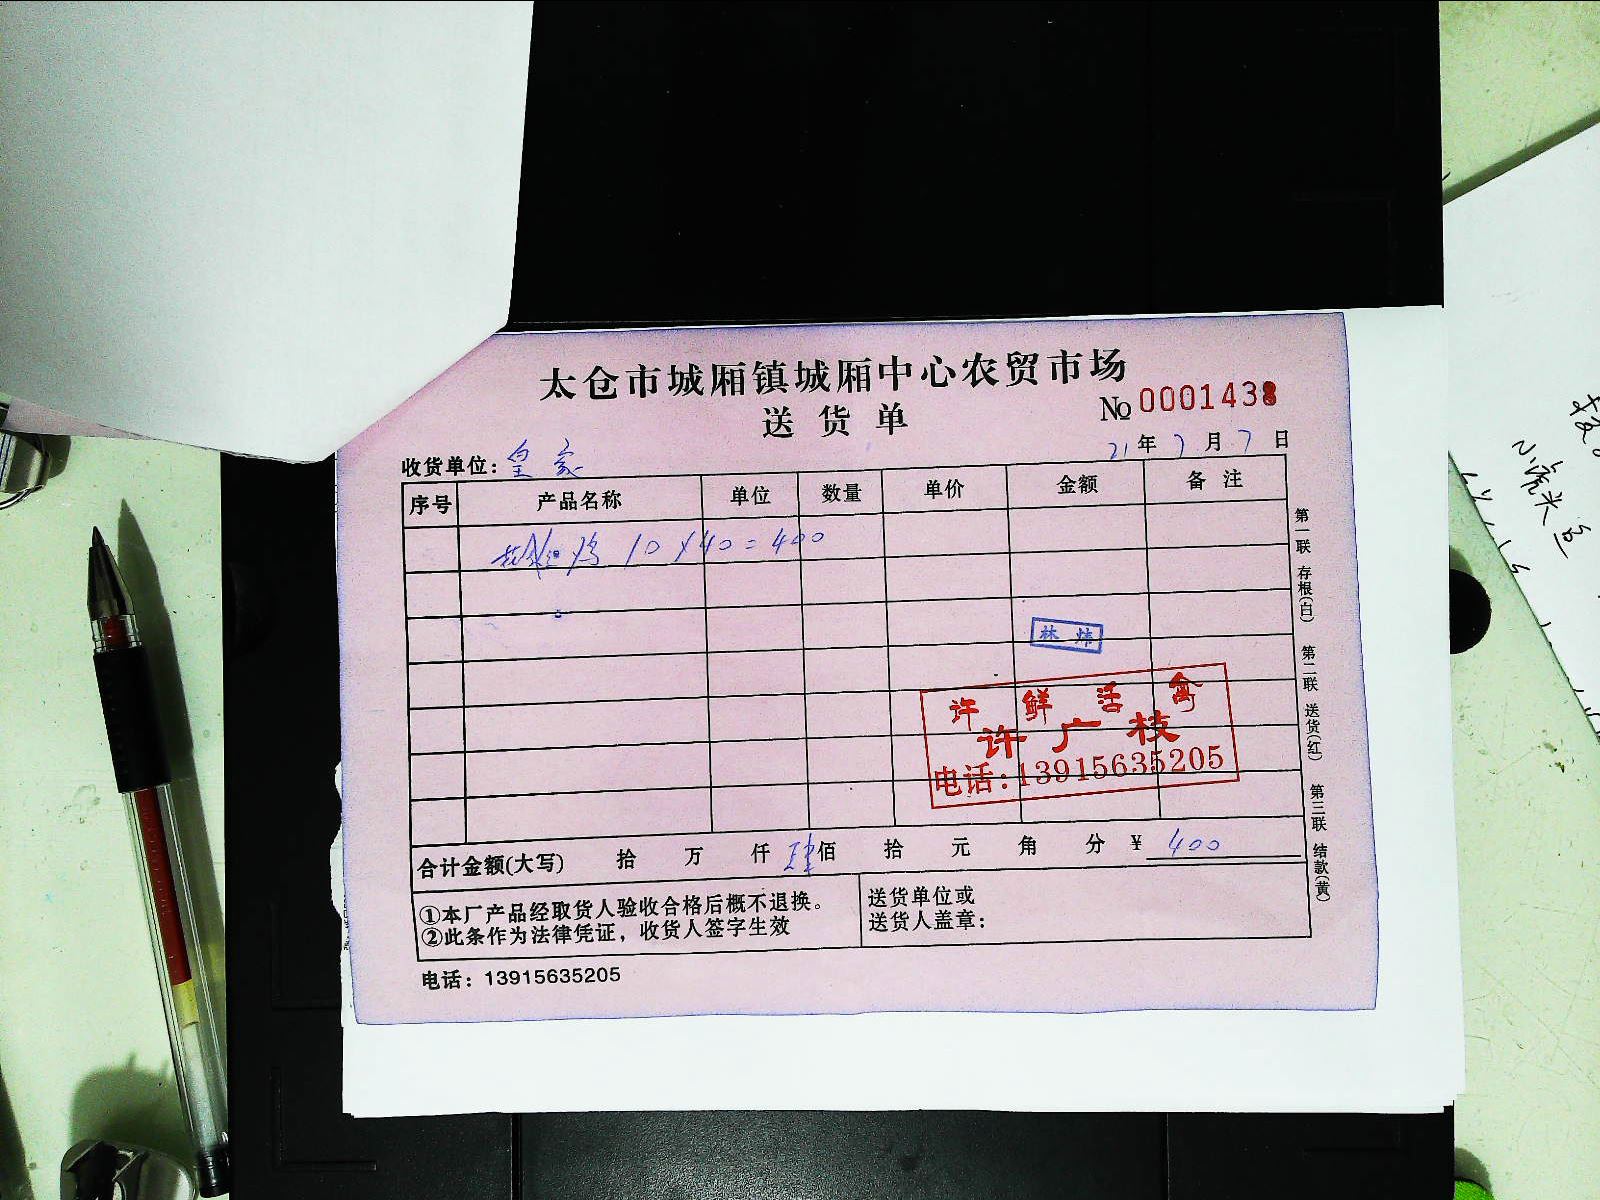 太仓市城厢镇城厢中心农贸市场
送货单
№ 0001438
收货单位：皇家
21年7月7日
序号 产品名称 单位 数量 单价 金额 备注
鸡 10×40=400
林炜
许鲜活禽
许广枝
电话：13915635205
合计金额(大写) 拾 万 仟 肆佰 拾 元 角 分 ¥ 400
①本厂产品经取货人验收合格后概不退换。
②此条作为法律凭证，收货人签字生效
送货单位或
送货人盖章：
电话：13915635205
第一联 存根(白) 第二联 送货(红) 第三联 结款(黄)
小虎头鱼